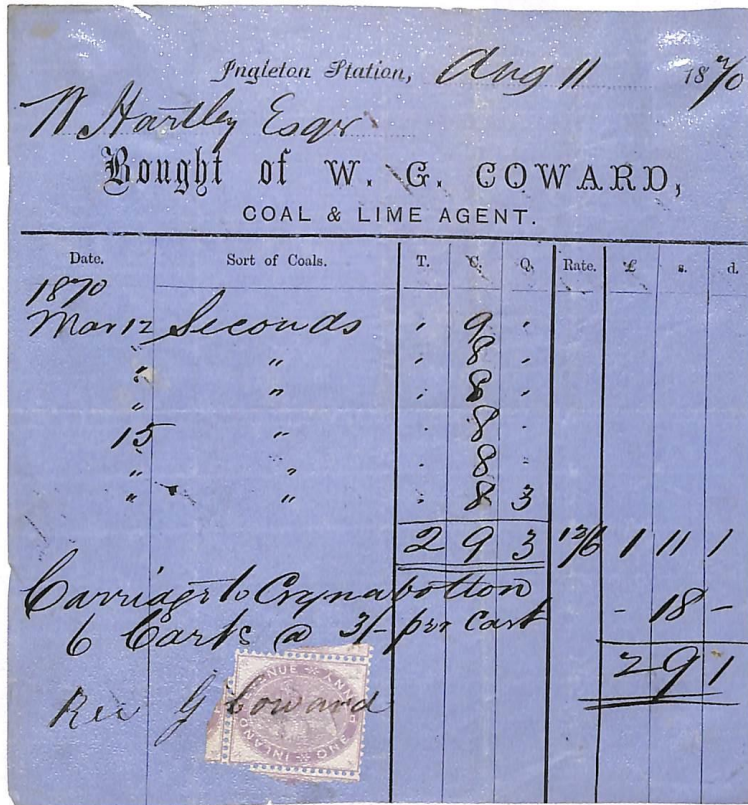 Ingleton Station, Aug 11 1870
W Hartley Esqr
Bought of W. G. COWARD,
COAL & LIME AGENT.
Date. Sort of Coals. T. C. Q. Rate. £ s. d.
1870
Mar 12 Seconds , 9 ,
" " , 8 ,
" " , 8 ,
15 " . 8 .
" " . 8 .
" " . 8 3
2 9 3 12/6 1 11 1
Carriage to
6 Carts @ 3/- per Cart - 18 -
2 9 1
Rec G Coward
INLAND REVENUE